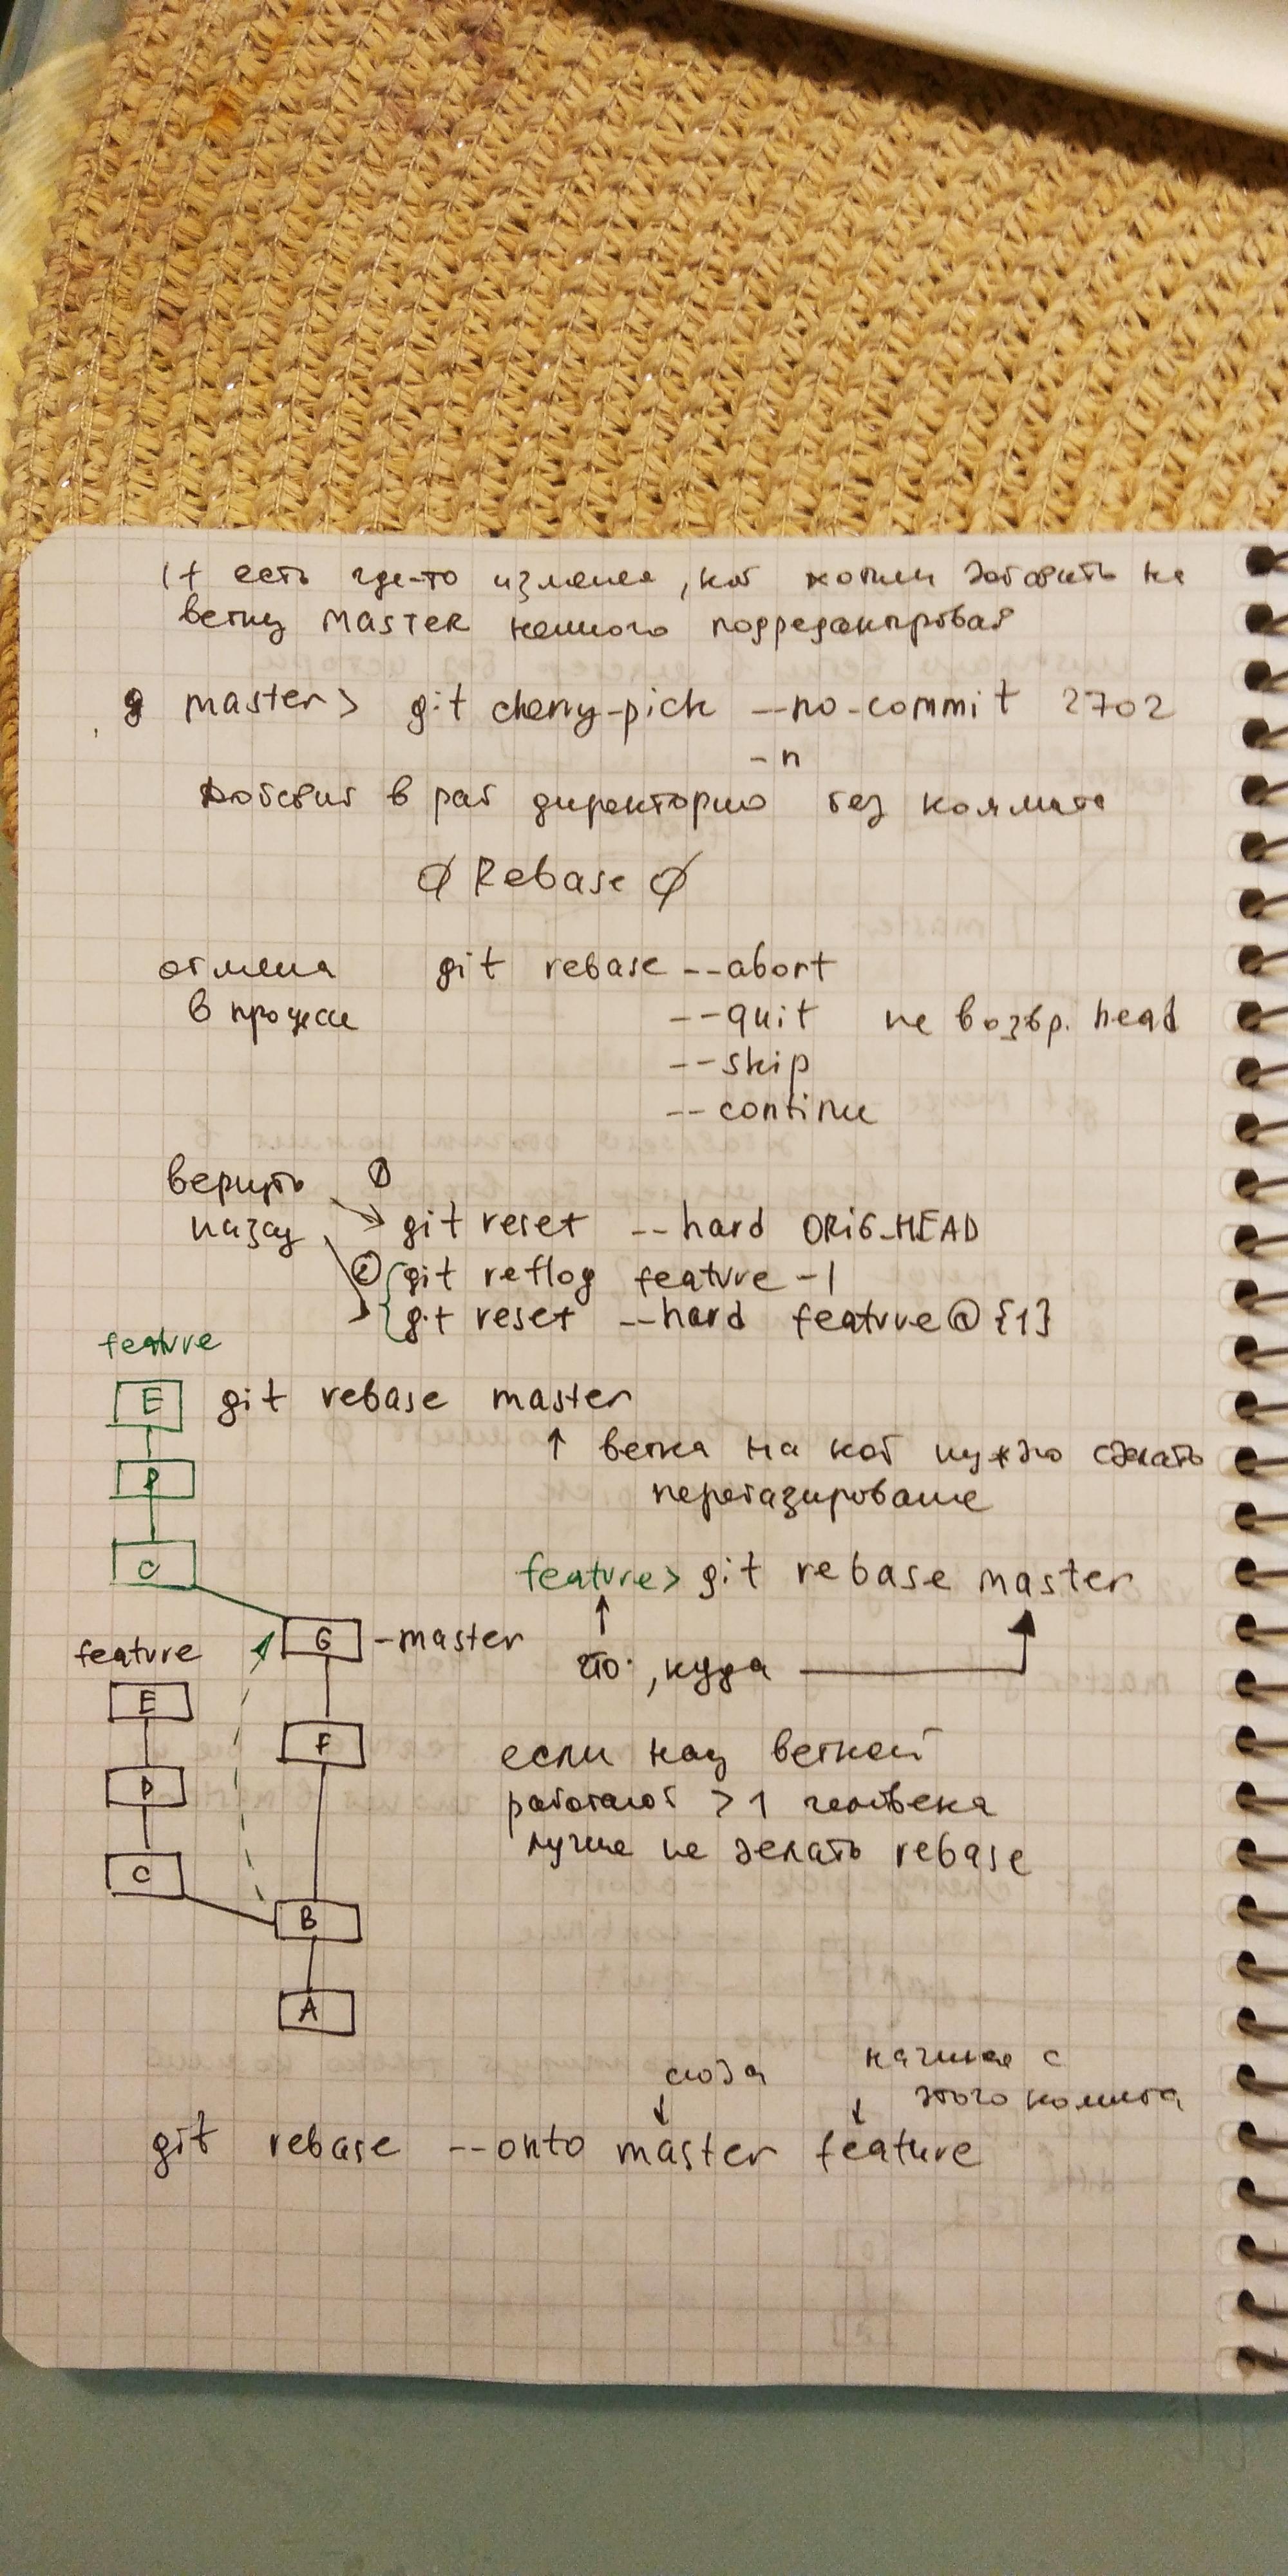 1+ есть где-то изменен, кот хотим добавить на
ветку master немного подредактировав
master> git cherry-pick --no-commit 2702
-n
добавит в раб директорию без коммита
Ø Rebase Ø
отмена git rebase --abort
в процессе --quit не возвр. head
--skip
--continue
вернуть ①
назад git reset --hard ORIG_HEAD
② git reflog feature -1
git reset --hard feature@{1}
feature
E git rebase master
↑ ветка на кот нужно сделать
D
перебазирование
C
feature> git rebase master
G -master
feature
что, куда
E
F
если над веткой
D
работают >1 человека
лучше не делать rebase
C
B
A
сюда
начиная с
этого комита
git rebase --onto master feature